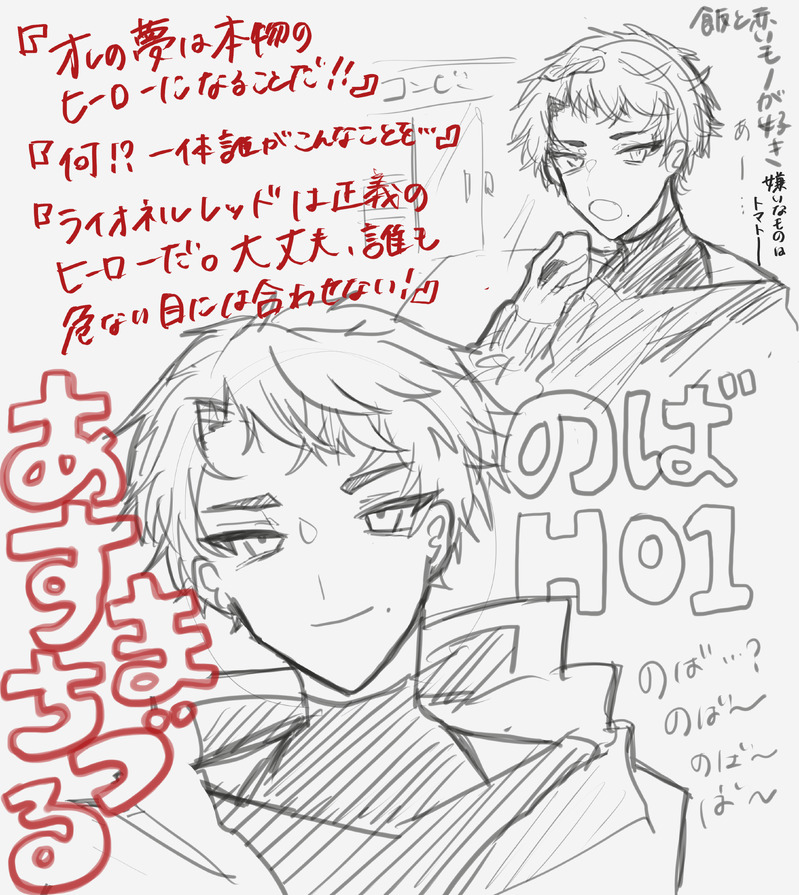 『オレの夢は本物の
ヒーローになることだ!!』
『何!? 一体誰がこんなことを…』
『ライオネルレッドは正義の
ヒーローだ。大丈夫、誰も
危ない目には合わせない!』
コンビニ
飯と恋いモノが好き
あー…
嫌いなものは
トマトー
のば
H01
あすま
ちづる
のば…?
のば〜
のば〜
ば〜